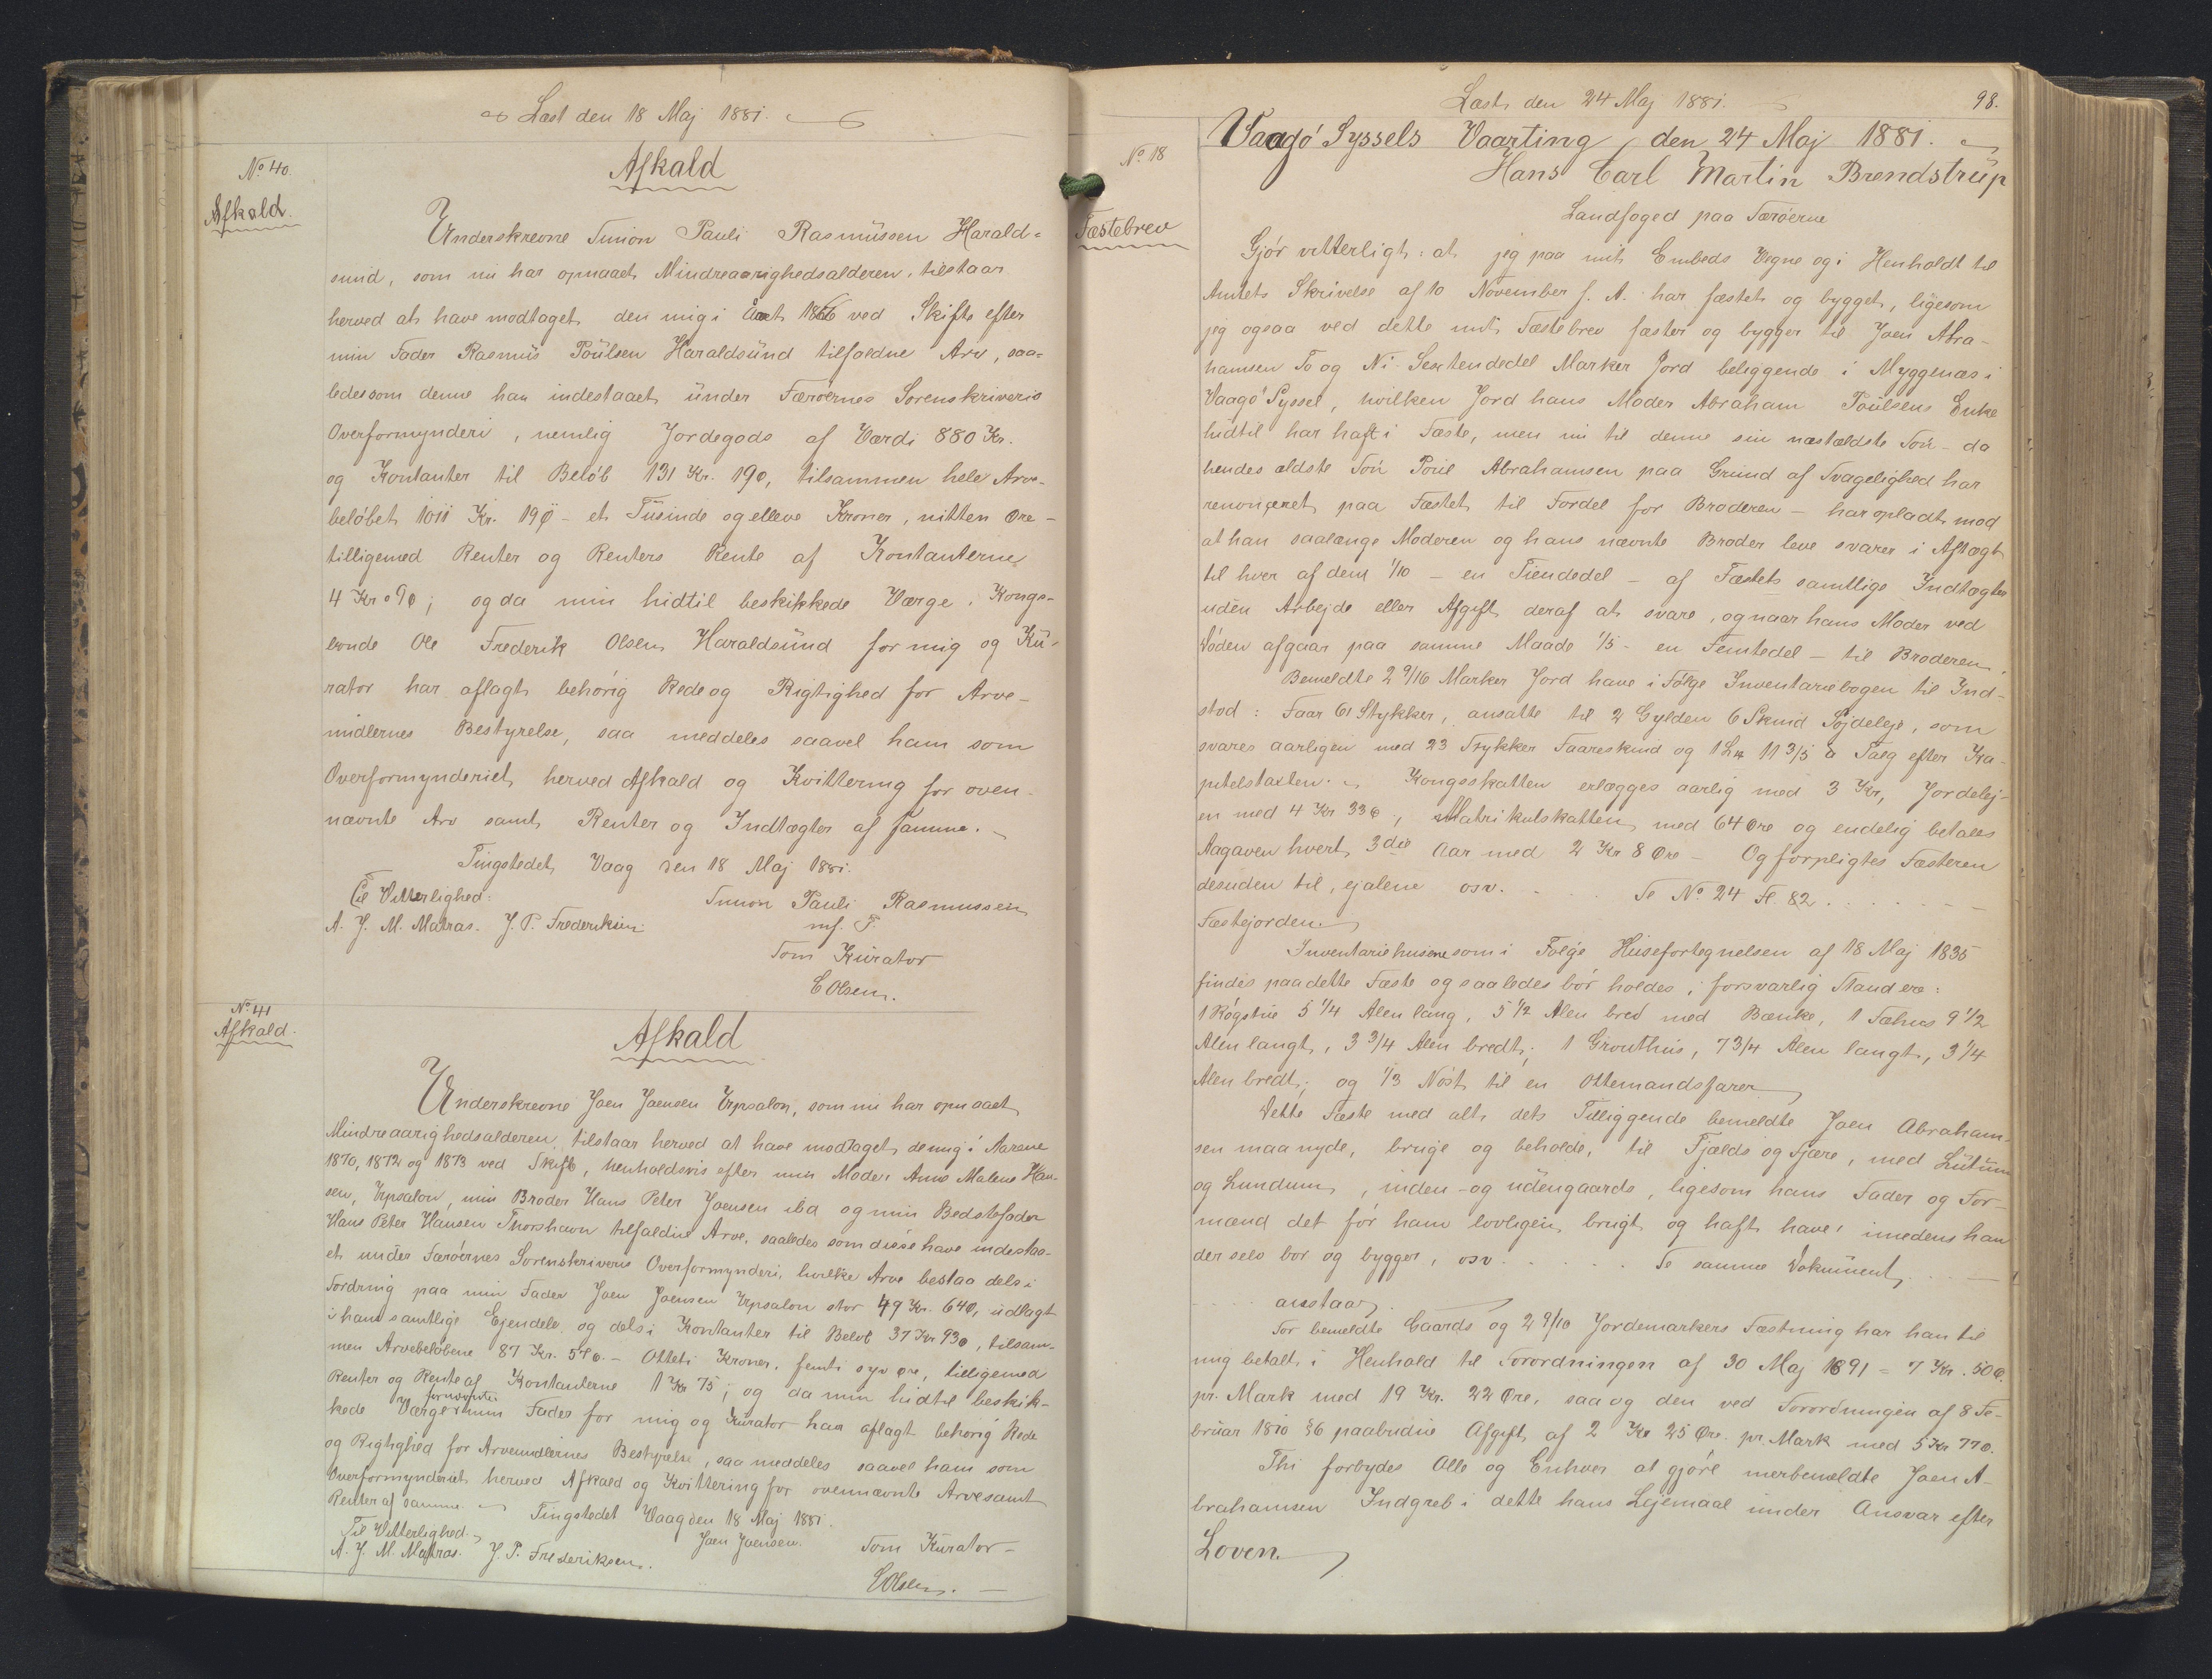 Læst den 18 Maj 1881.
No 40.
Afkald.
Afkald
Underskrevne Simon Pauli Rasmussen Harald=
sund, som nu har opnaaet Mindreaarighedsalderen, tilstaar
herved at have modtaget den mig i Aaret 1866 ved Skifte efter
min Fader Rasmus Poulsen Haraldsund tilfaldne Arv, saa=
ledes som denne har indestaaet under Færøernes Sorenskriveris
Overformynderi, nemlig Jordegods af Værdi 880 Kr.
og Kontanter til Beløb 131 Kr. 19Ø, tilsammen hele Arve-
beløbet 1011 Kr. 19Ø - et Tusinde og elleve Kroner, nitten Øre -
tilligemed Renter og Renters Rente af Kontanterne
4 Kr 09Ø; og da min hidtil beskikkede Værge, Kongs-
bonde Ole Frederik Olsen Haraldsund for mig og Ku-
rator har aflagt behørig Rede og Rigtighed for Arve-
midlernes Bestyrelse, saa meddeles saavel ham som
Overformynderiet herved Afkald og Kvittering for oven-
nævnte Arv samt Renter og Indtægter af samme. -
Tingstedet Vaag den 18 Maj 1881.
Til Vitterlighed: Simon Pauli Rasmussen
A. J. M. Matras. J. P. Frederiksen. mf. P.
Som Kurator
E Olsen.
No 41
Afkald.
Afkald
Underskrevne Joen Joensen Ørpsalon, som nu har opnaaet
Mindreaarighedsalderen, tilstaar herved at have modtaget de mig i Aarene
1870, 1872 og 1873 ved Skifte, henholdsvis efter min Moder Anne Malene Han-
sen, Ørpsalon, min Broder Hans Peter Joensen ibd og min Bedstefader
Hans Peter Hansen Thorshavn tilfaldne Arve, saaledes som disse have indestaa-
et under Færøernes Sorenskriveris Overformynderi, hvilke Arve bestaa dels i
Fordring paa min Fader Joen Joensen Ørpsalon stor 49 Kr. 64Ø, udlagt
i hans samtlige Ejendele og dels i Kontanter til Beløb 37 Kr 93Ø, tilsam-
men Arvebeløbene 87 Kr. 57Ø. - Otteti Kroner, femti syv Øre, tilligemed
Renter og Rente af Kontanterne 1 Kr 75; og da min hidtil beskik-
kede Værge fornævnte min Fader for mig og Kurator har aflagt behørig Rede
og Rigtighed for Arvemidlernes Bestyrelse, saa meddeles saavel ham som
Overformynderiet herved Afkald og Kvittering for ovennævnte Arve samt
Renter af samme. - Tingstedet Vaag den 18 Maj 1881.
Til Vitterlighed. Joen Joensen. Som Kurator -
A. J. M. Matras. J. P. Frederiksen.
E Olsen. -
Læst den 24 Maj 1881.
98.
No 18
Fæstebrev
Vaagø Syssels Vaarting, den 24 Maj 1881.
Hans Carl Martin Brendstrup
Landfoged paa Færøerne
Gjør vitterligt: at jeg paa mit Embeds Vegne og i Henholdt til
Amtets Skrivelse af 10 November f. A. har fæstet og bygget, ligesom
jeg ogsaa ved dette mit Fæstebrev fæster og bygger til Joen Abra-
hamsen To og Ni Sextendedel Marker Jord beliggende i Myggenæs i
Vaagø Syssel, hvilken Jord hans Moder Abraham Poulsens Enke
hidtil har haft i Fæste, men nu til denne sin næstældste Søn - da
hendes ældste Søn Poul Abrahamsen paa Grund af Svagelighed har
renonceret paa Fæstet til Fordel for Broderen - har opladt mod
at han saalænge Moderen og hans nævnte Broder leve svarer i Aftægt
til hver af dem 1/10 - en Tiendedel - af Fæstets samtlige Indtægter
uden Arbejde eller Afgift deraf at svare, og naar hans Moder ved
Døden afgaar paa samme Maade 1/5 - en Femtedel - til Broderen.
Bemeldte 2 9/16 Marker Jord have i Følge Inventariebogen til Ind-
stod: Faar 61 Stykker, ansatte til 2 Gylden 6 Skind Søjdeleje, som
svares aarligen med 23 Stykker Faareskind og 1 L℔ 11 3/5 ℔ Talg efter Ka-
pitelstaxten. - Kongsskatten erlægges aarlig med 3 Kr, Jordelej-
en med 4 Kr 33Ø, Matrikulskatten med 64 Øre og endelig betales
Aagaven hvert 3die Aar med 2 Kr 8 Øre - Og forpligtes Fæsteren
desuden til, ejalene osv. . . . Se No 24 Fl. 82 . . . . . .
Fæstejorden.
Inventariehusene som i Følge Husefortegnelsen af 18 Maj 1835
findes paa dette Fæste og saaledes bør holdes i forsvarlig Stand ere:
1 Røgstue 5 1/4 Alen lang, 5 1/2 Alen bred med Bænke, 1 Fæhus 9 1/2
Alen langt, 3 3/4 Alen bredt; 1 Grouthus, 7 3/4 Alen langt, 3 1/4
Alen bredt; og 1/3 Nøst til en Ottemandsfarer
Dette Fæste med alt dets Tilliggende bemeldte Joen Abraham-
sen maa nyde, bruge og beholde, til Fjælds og Fjære, med Lutum
og Lundum, inden- og udengaards, ligesom hans Fader og For-
mænd det før ham lovligen brugt og haft have, imedens han
der selv bor og bygger, osv. . . . . Se samme Dokument . . . -
. . . . anstaar.
For bemeldte Gaards og 2 9/16 Jordemarkers Fæstning har han til
mig betalt i Henhold til Forordningen af 30 Maj 1691 = 7 Kr. 50Ø.
pr. Mark med 19 Kr. 22 Øre, saa og den ved Forordningen af 8 Fe-
bruar 1810 §6 paabudne Afgift af 2 Kr 25 Øre pr. Mark med 5 Kr 77Ø.
Thi forbydes Alle og Enhver at gjøre merbemeldte Joen A-
brahamsen Indgreb i dette hans Lejemaal under Ansvar efter
Loven.